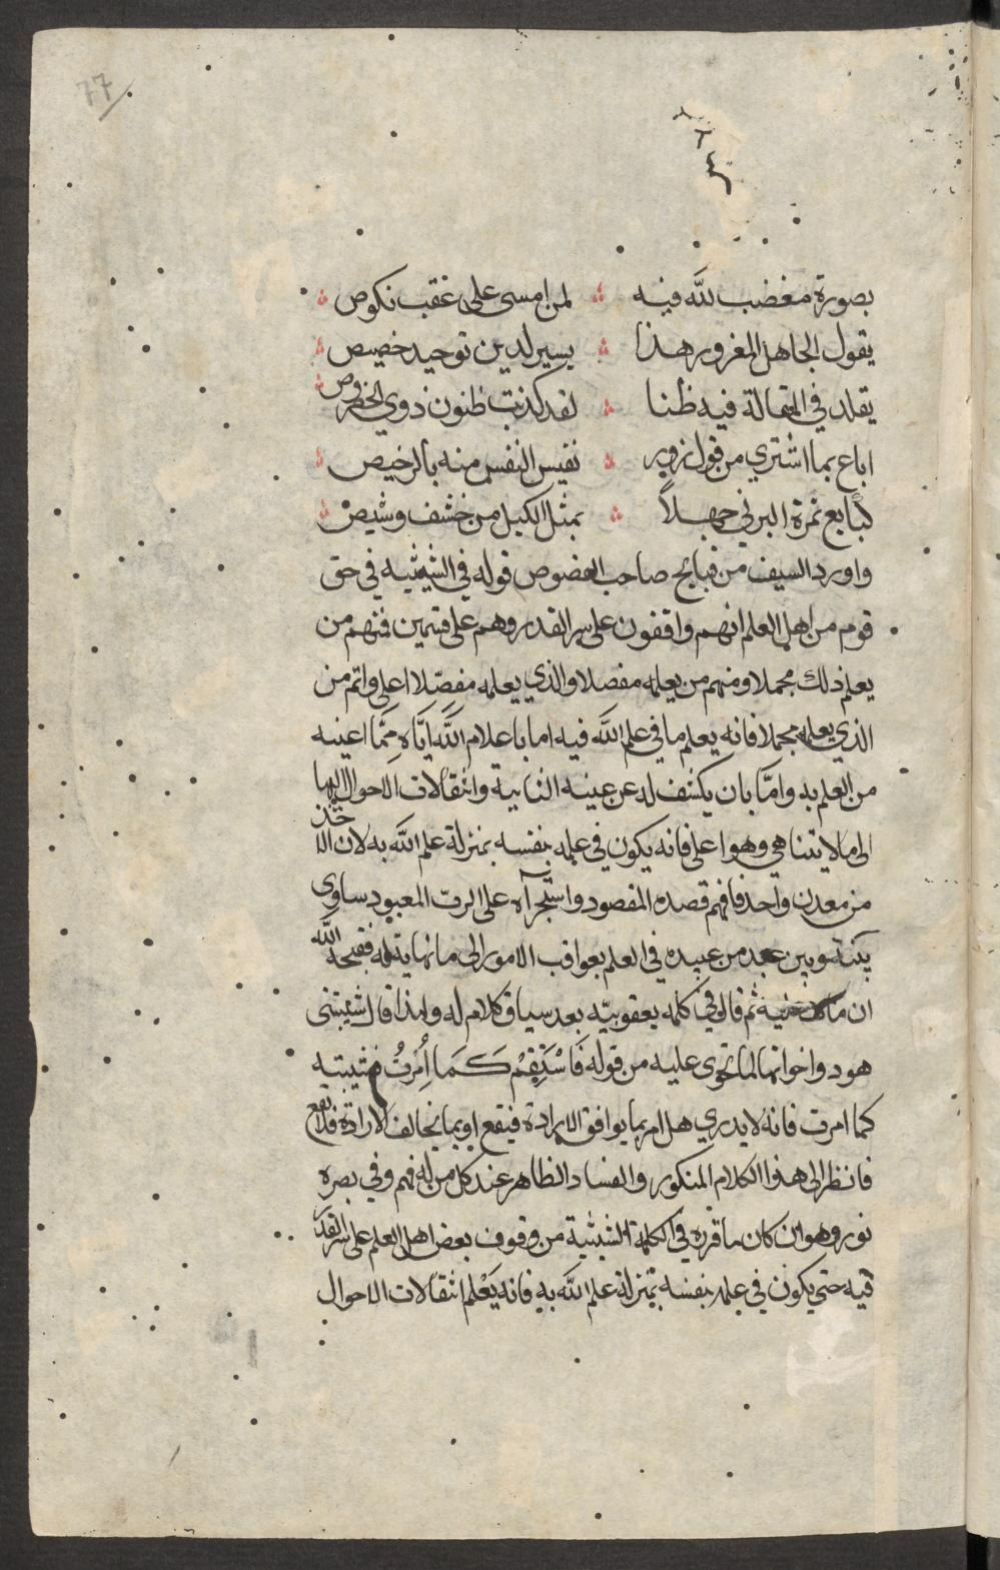 77
بصورة مغضب لله فيه ؞ لمن امسى على عقب نكوص ؞
يقول الجاهل المغرور هذا ؞ يسير لدين توحيد خصيص ؞
يقلد في المقالة فيه ظنا ؞ لقد كذبت ظنون ذوي الخروص ؞
اباع بما اشتري من قول زوير ؞ نفيس النفس منه بالرخيص ؞
كبايع تمرة البرني جهلاً ؞ بمثل الكيل من خشف وشيص ؞
واورد السيف من قبايح صاحب الفصوص قوله في الشيثيه في حق
قوم من اهل العلم انهم واقفون على سر القدر وهم على قسمين فمنهم من
يعلم ذلك مجملا ومنهم من يعلمه مفصلا والذي يعلمه مفصّلا اعلى واتم من
الذي يعلمه مجملا فانه يعلم ما في علم الله فيه اما باعلام الله ايّاه مِمَّا اعينه
من العلم به وامَّا بان يكشف له عن عينه الثابية وانتقالات الاحوال اليها
الى ما لا يتناهي وهو اعلى فانه يكون في علمه بنفسه بمنزلة علم الله به لان الاخذ
من معدن واحد فافهم قصده المقصود واستجرآه على الرب المعبود ساوى
بينه وبين عبد من عبيده في العلم بعواقب الامور الى ما نهاية له فقبحه الله
ان ماكان ثم قال في كلمه يعقوبيّه بعد سياق كلام له ولهذا قال شيبتني
هود واخواتها لما تحوى عليه من قوله فَاسْتَقِمْ كَمَا أُمِرْتُ فشيبته
كما امرت فانه لا يدري هل امر بما يوافق الارادة فيقع او بما يخالف الارادة فلا يقع
فانظر الى هذا الكلام المنكور والفساد الظاهر عند كل من له فهم وفي بصره
نور وهو ان كان ما قرره في الكلمة الشيثية من وقوف بعض اهل العلم على سر القدر
فيه حتى يكون في علمه بنفسه بمنزلة علم الله به فانه يَعْلم انتقالات الاحوال